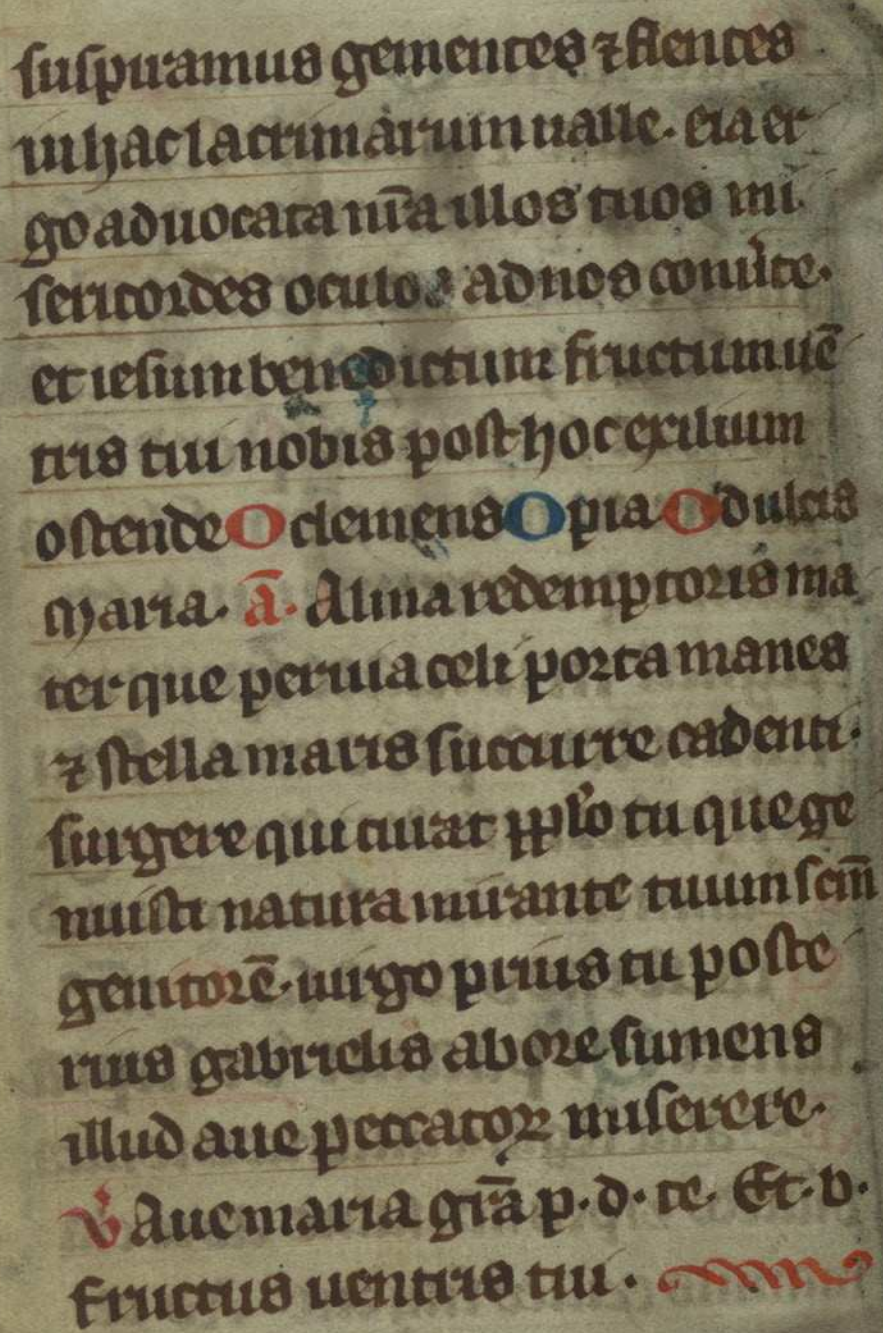 suspiramus gementes ⁊ flentes
in hac lacrimarum ualle. eia er
go aduocata nr̄a illos tuos mi
sericordes oculos ad nos conu̾te.
et iesum benedictum fructum uē
tris tui nobis post hoc exilium
ostende O clemens O pia O dulcis
maria. a̅. Alma redemptoris ma
ter que peruia celi porta manes
⁊ stella maris succurre cadenti.
surgere qui curat pplo tu que ge
nuisti natura mirante tuum scm̄
genitorē. uirgo prius tu poste
rius gabrielis ab ore sumens
illud aue peccatoꝝ miserere.
v̾ Aue maria gr̄a p. d. te. Et. b.
fructus uentris tui.